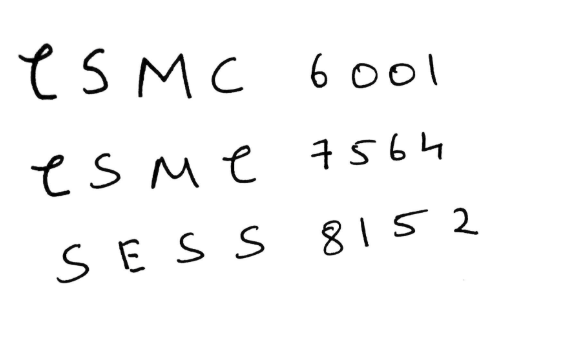 CSMC 6001
CSMC 7564
SESS 8152